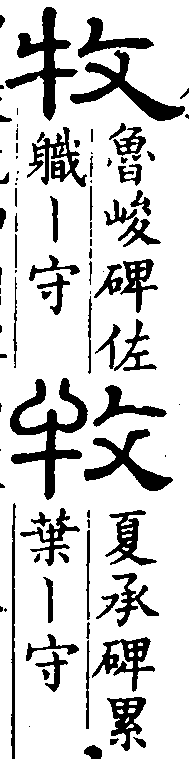 牧
魯峻碑佐
職丨守
牧
夏承碑累
葉丨守